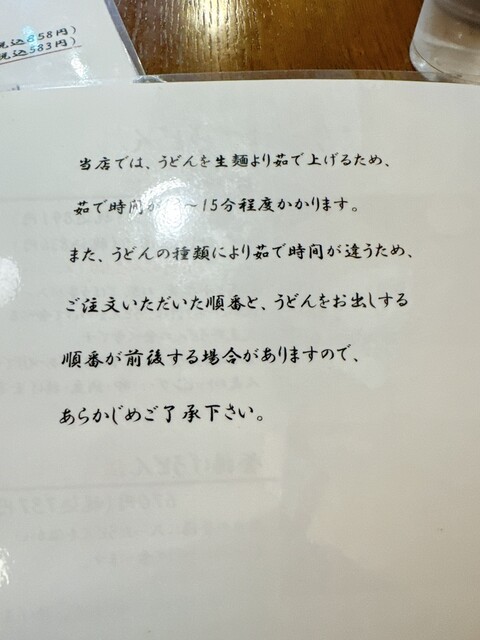 税込858円)
税込583円)
当店では、うどんを生麺より茹で上げるため、
茹で時間が ～15分程度かかります。
また、うどんの種類により茹で時間が違うため、
ご注文いただいた順番と、うどんをお出しする
順番が前後する場合がありますので、
あらかじめご了承下さい。